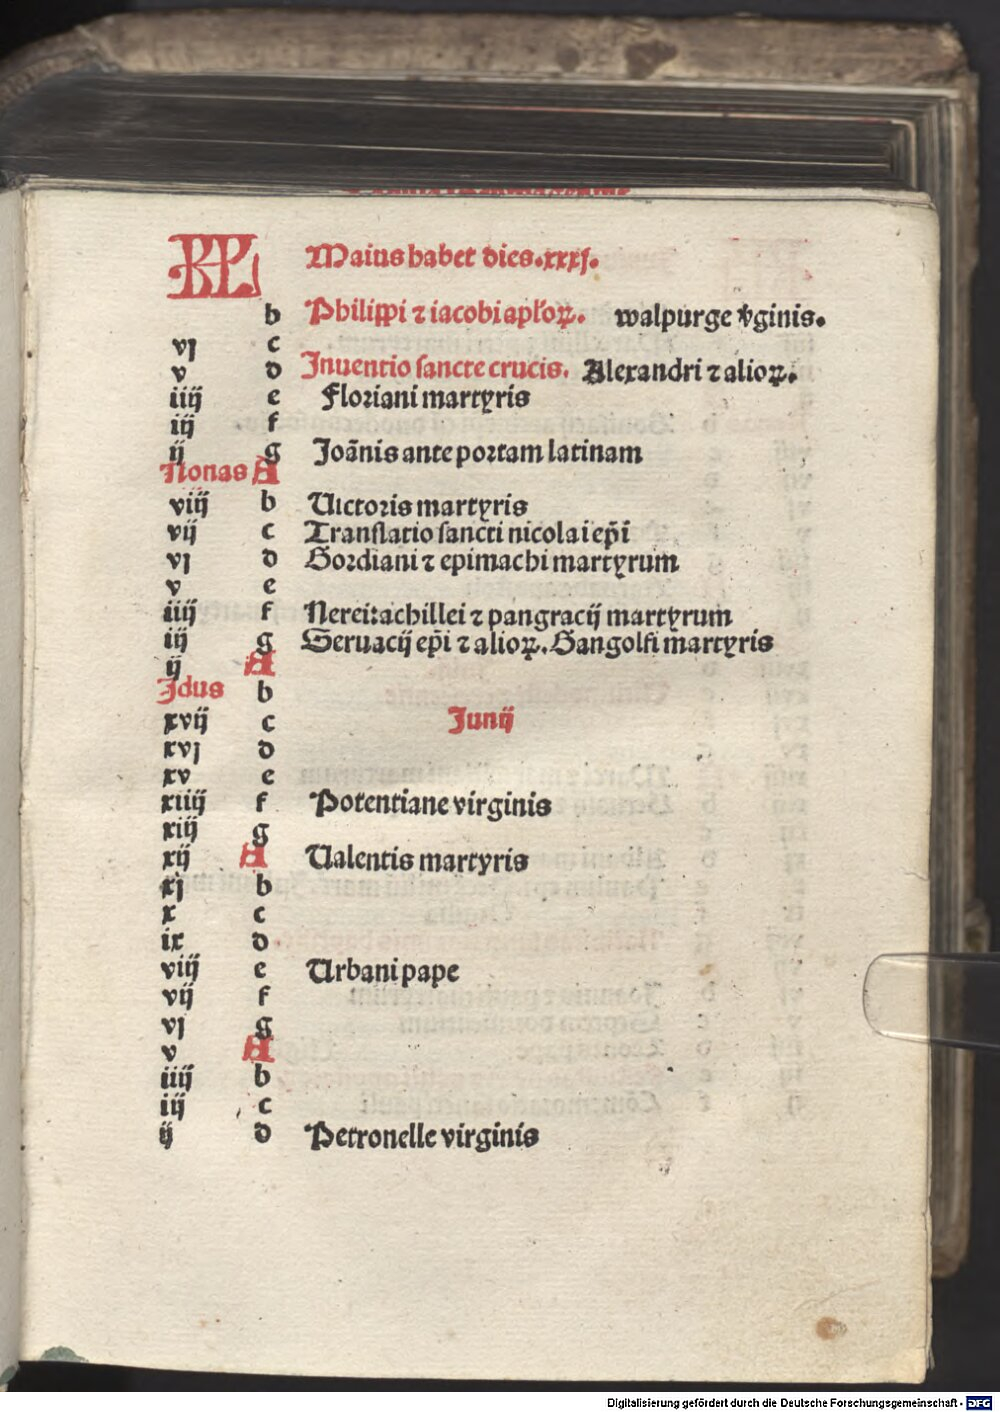 KL Maius habet dies.xxxj.
b Philippi ⁊ iacobi apl'oꝝ. walpurge v̓ginis.
vj c
v d Inuentio sancte crucis. Alexandri ⁊ alioꝝ.
iiij e Floriani martyris
iij f
ij g Joãnis ante portam latinam
Nonas A
viij b Uictoris martyris
vij c Translatio sancti nicolai ep̄i
vj d Gordiani ⁊ epimachi martyrum
v e
iiij f Nerei:achillei ⁊ pangracij martyrum
iij g Seruacij ep̄i ⁊ alioꝝ. Gangolfi martyris
ij A
Idus b
xvij c Junij
xvj d
xv e
xiiij f Potentiane virginis
xiij g
xij A Ualentis martyris
xj b
x c
ix d
viij e Urbani pape
vij f
vj g
v A
iiij b
iij c
ij d Petronelle virginis
Digitalisierung gefördert durch die Deutsche Forschungsgemeinschaft - DFG